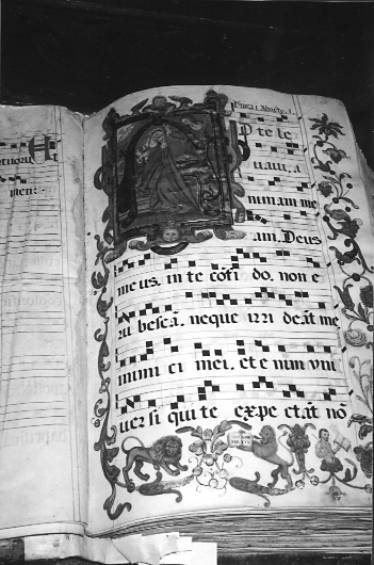 etuoru
men:
D te le
uaui, a
nimam me
am. Deus
me us. in te cōfi do. non e
ru bescā. neque irri deāt me
inimi ci mei. et e nim vni
uer si qui te expe ctāt nō